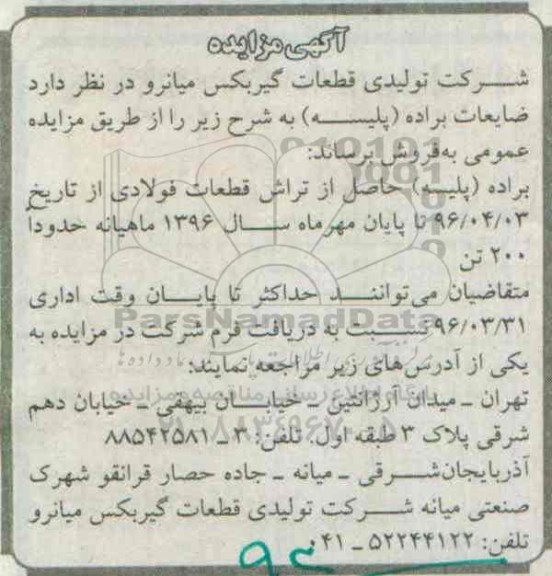 آگهی مزایده
شرکت تولیدی قطعات گیربکس میانرو در نظر دارد
ضایعات براده (پلیسه) به شرح زیر را از طریق مزایده
عمومی به‌فروش برساند:
براده (پلیسه) حاصل از تراش قطعات فولادی از تاریخ
۹۶/۰۴/۰۳ تا پایان مهرماه سال ۱۳۹۶ ماهیانه حدوداً
۲۰۰ تن
متقاضیان می‌توانند حداکثر تا پایان وقت اداری
۹۶/۰۳/۳۱ نسبت به دریافت فرم شرکت در مزایده به
یکی از آدرس‌های زیر مراجعه نمایند:
تهران ـ میدان آرژانتین ـ خیابان بیهقی ـ خیابان دهم
شرقی پلاک ۳ طبقه اول، تلفن: ۳ ـ ۸۸۵۴۲۵۸۱
آذربایجان‌شرقی ـ میانه ـ جاده حصار قرانقو شهرک
صنعتی میانه شرکت تولیدی قطعات گیربکس میانرو
تلفن: ۵۲۲۴۴۱۲۲ ـ ۰۴۱
ParsNamadData